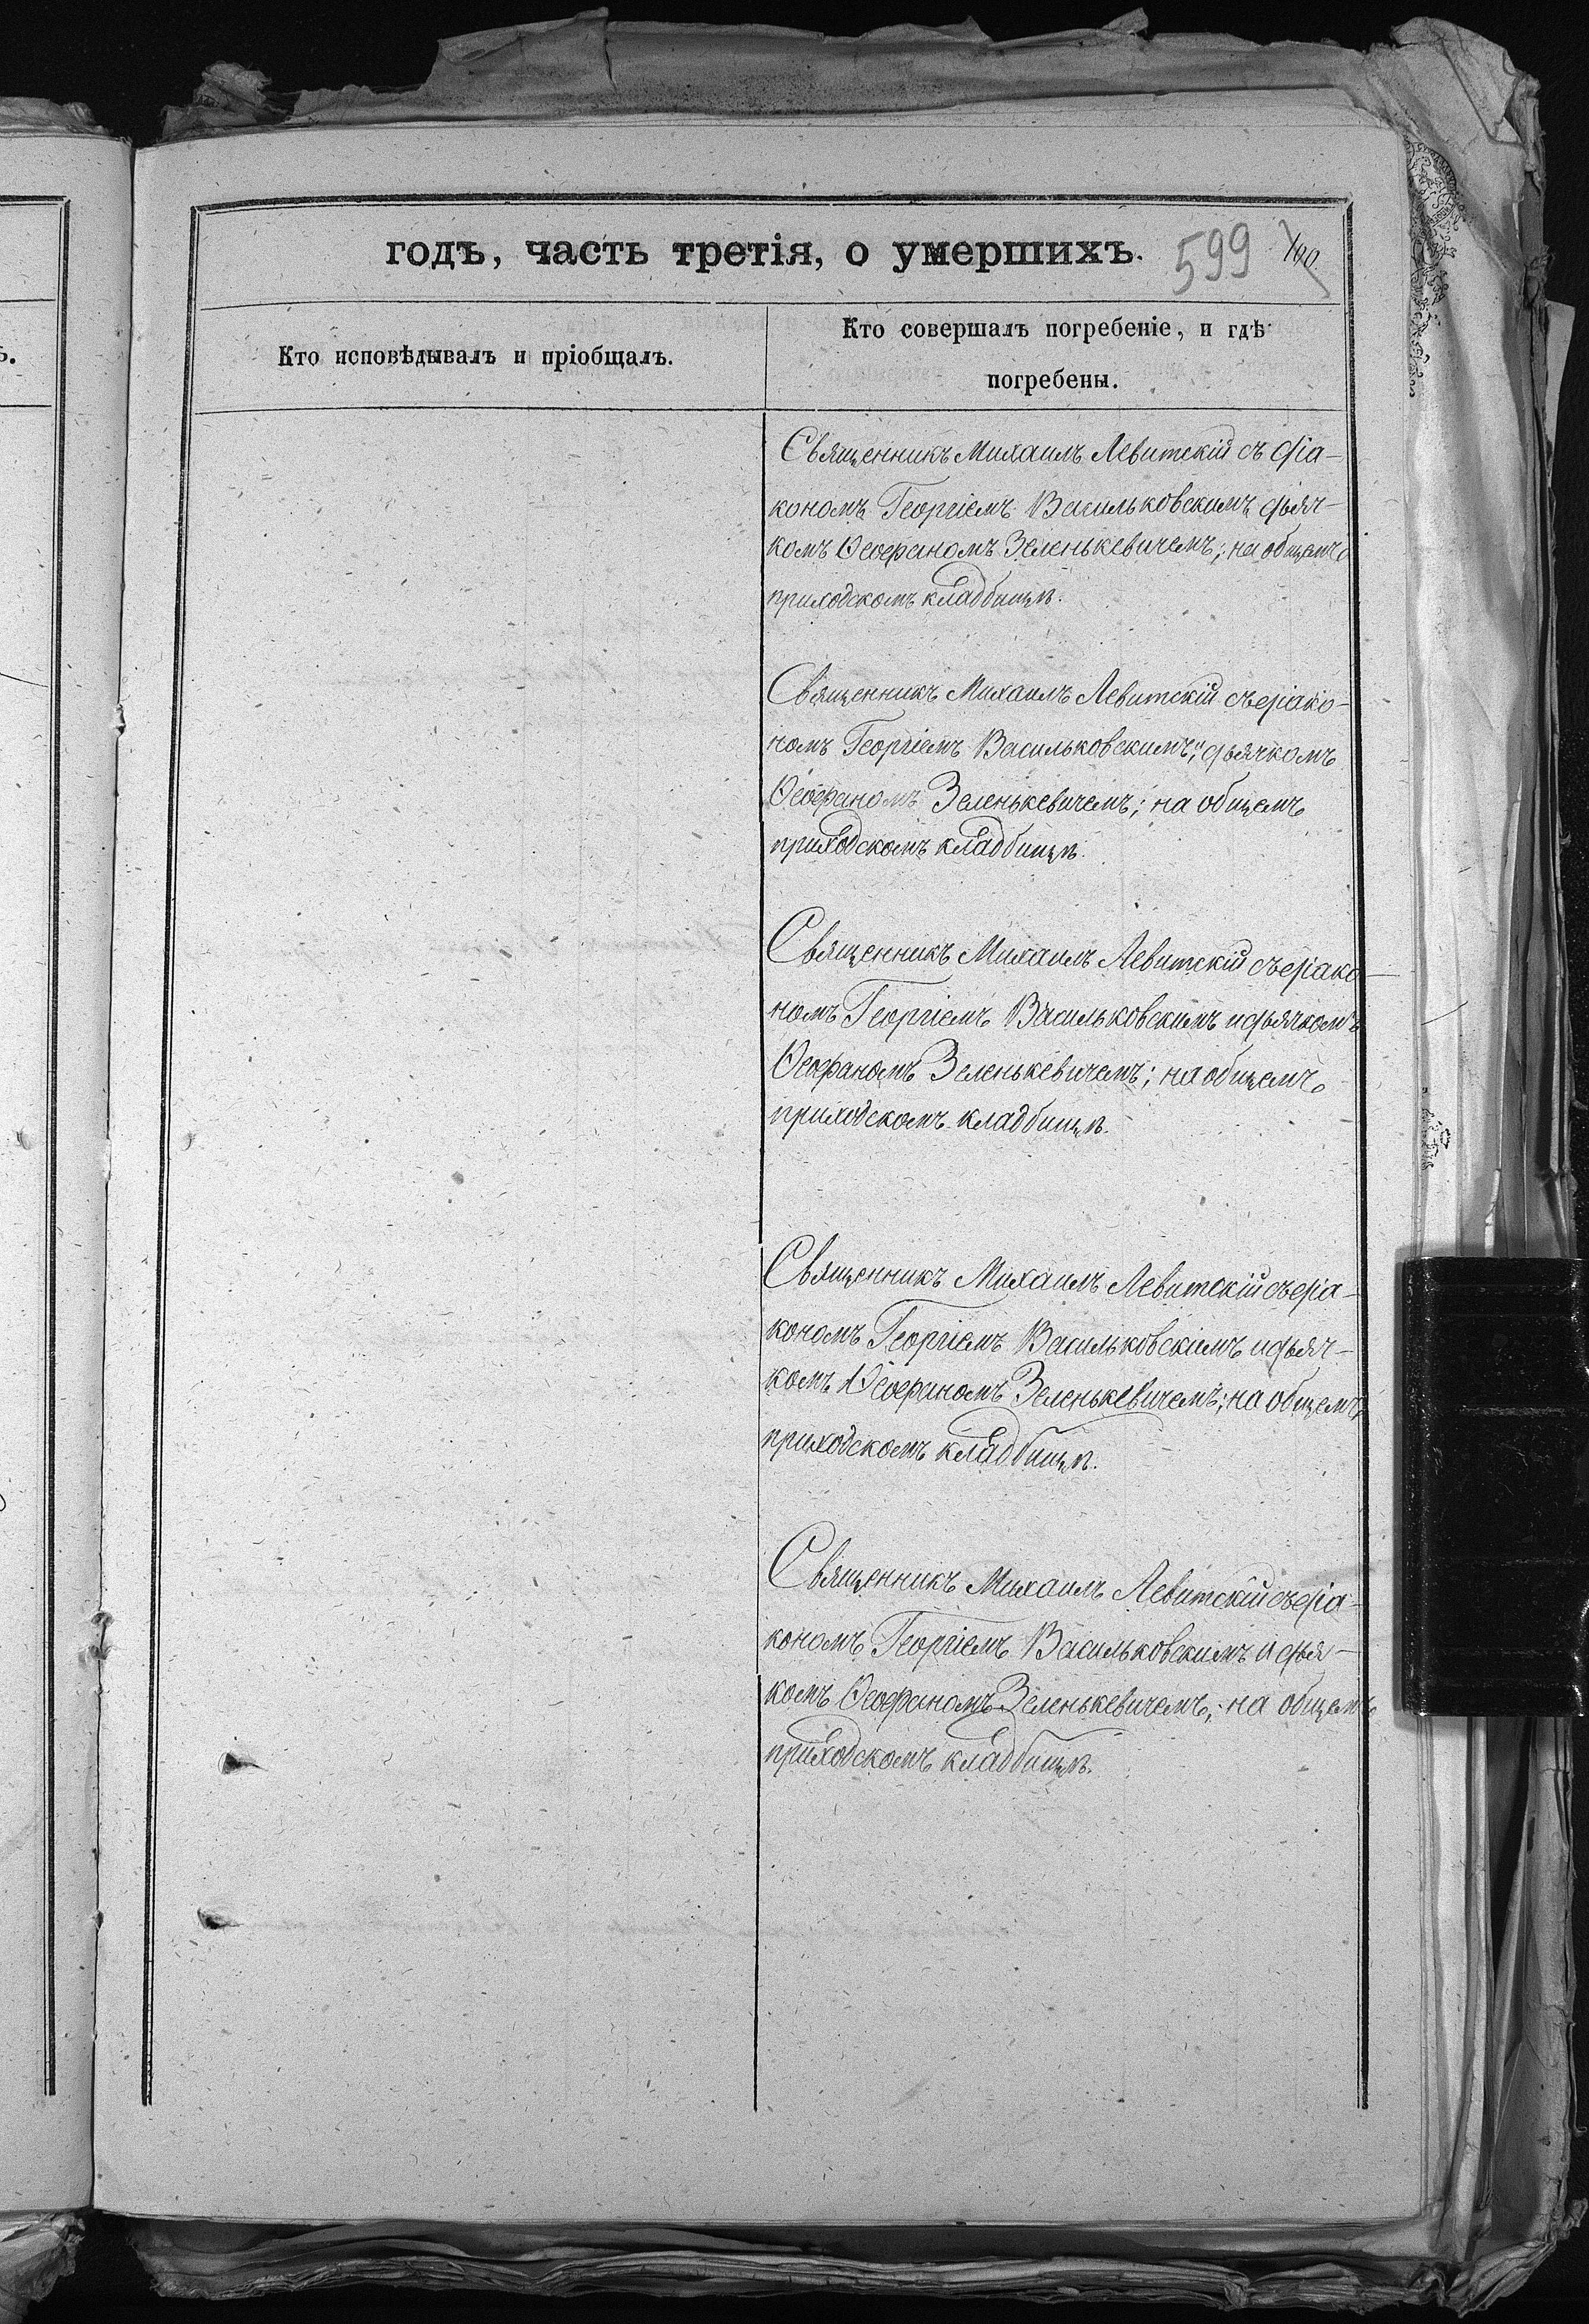 годъ, часть третія, о умершихъ. 599
Кто исповѣдывалъ и пріобщалъ.
Кто совершалъ погребеніе, и гдѣ
погребены.
Священникъ Михаилъ Левитскій съ діа-
кономъ Георгіемъ Васильковскимъ дьяч-
комъ Ѳеофаномъ Зеленькевичемъ; на общемъ
приходскомъ кладбищѣ.
Священникъ Михаилъ Левитскій съ діако-
номъ Георгіемъ Васильковскимъ и дьячкомъ
Ѳеофаномъ Зеленькевичемъ; на общемъ
приходскомъ кладбищѣ.
Священникъ Михаилъ Левитскій съ діако-
номъ Георгіемъ Васильковскимъ и дьячкомъ
Ѳеофаномъ Зеленькевичемъ; на общемъ
приходскомъ кладбищѣ.
Священникъ Михаилъ Левитскій съ діа-
кономъ Георгіемъ Васильковскімъ и дьяч-
комъ Ѳеофаномъ Зеленькевичемъ; на общемъ
приходскомъ кладбищѣ.
Священникъ Михаилъ Левитскій съ діа-
кономъ Георгіемъ Васильковскимъ и дья-
комъ Ѳеофаномъ Зеленькевичемъ; на общемъ
приходскомъ кладбищѣ.